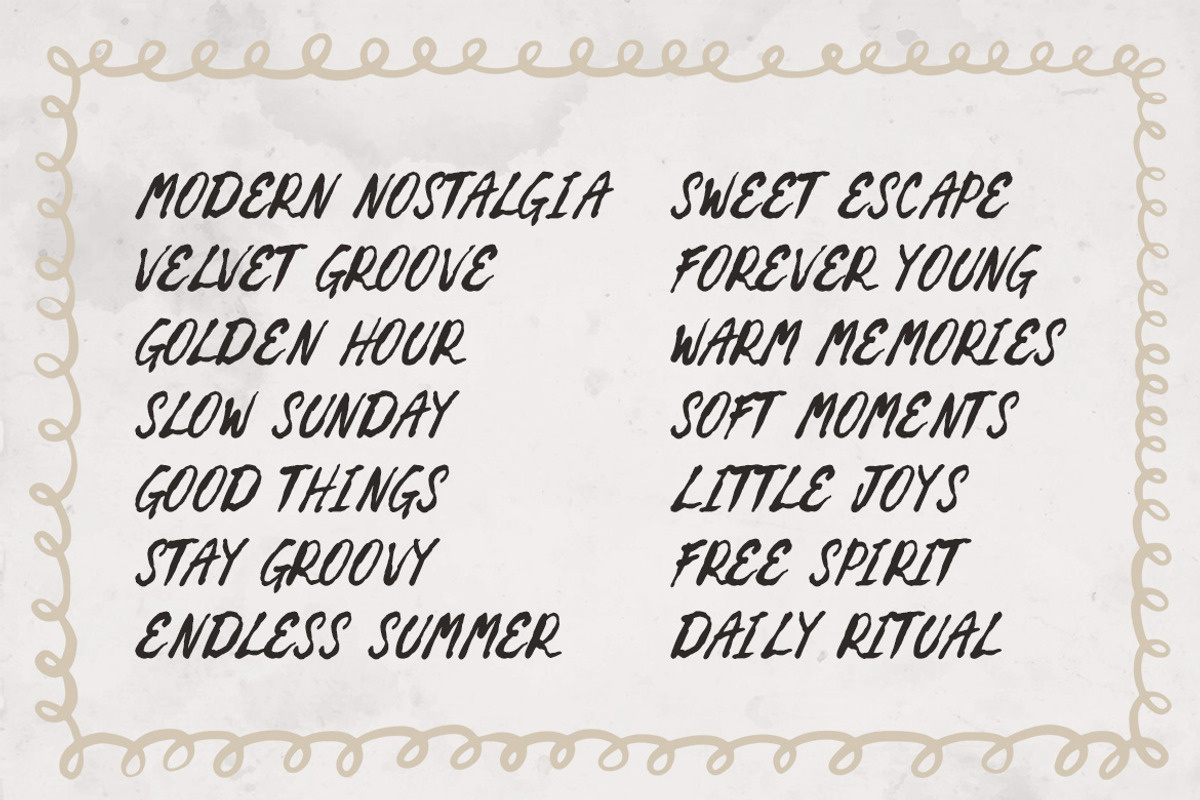 MODERN NOSTALGIA
VELVET GROOVE
GOLDEN HOUR
SLOW SUNDAY
GOOD THINGS
STAY GROOVY
ENDLESS SUMMER
SWEET ESCAPE
FOREVER YOUNG
WARM MEMORIES
SOFT MOMENTS
LITTLE JOYS
FREE SPIRIT
DAILY RITUAL